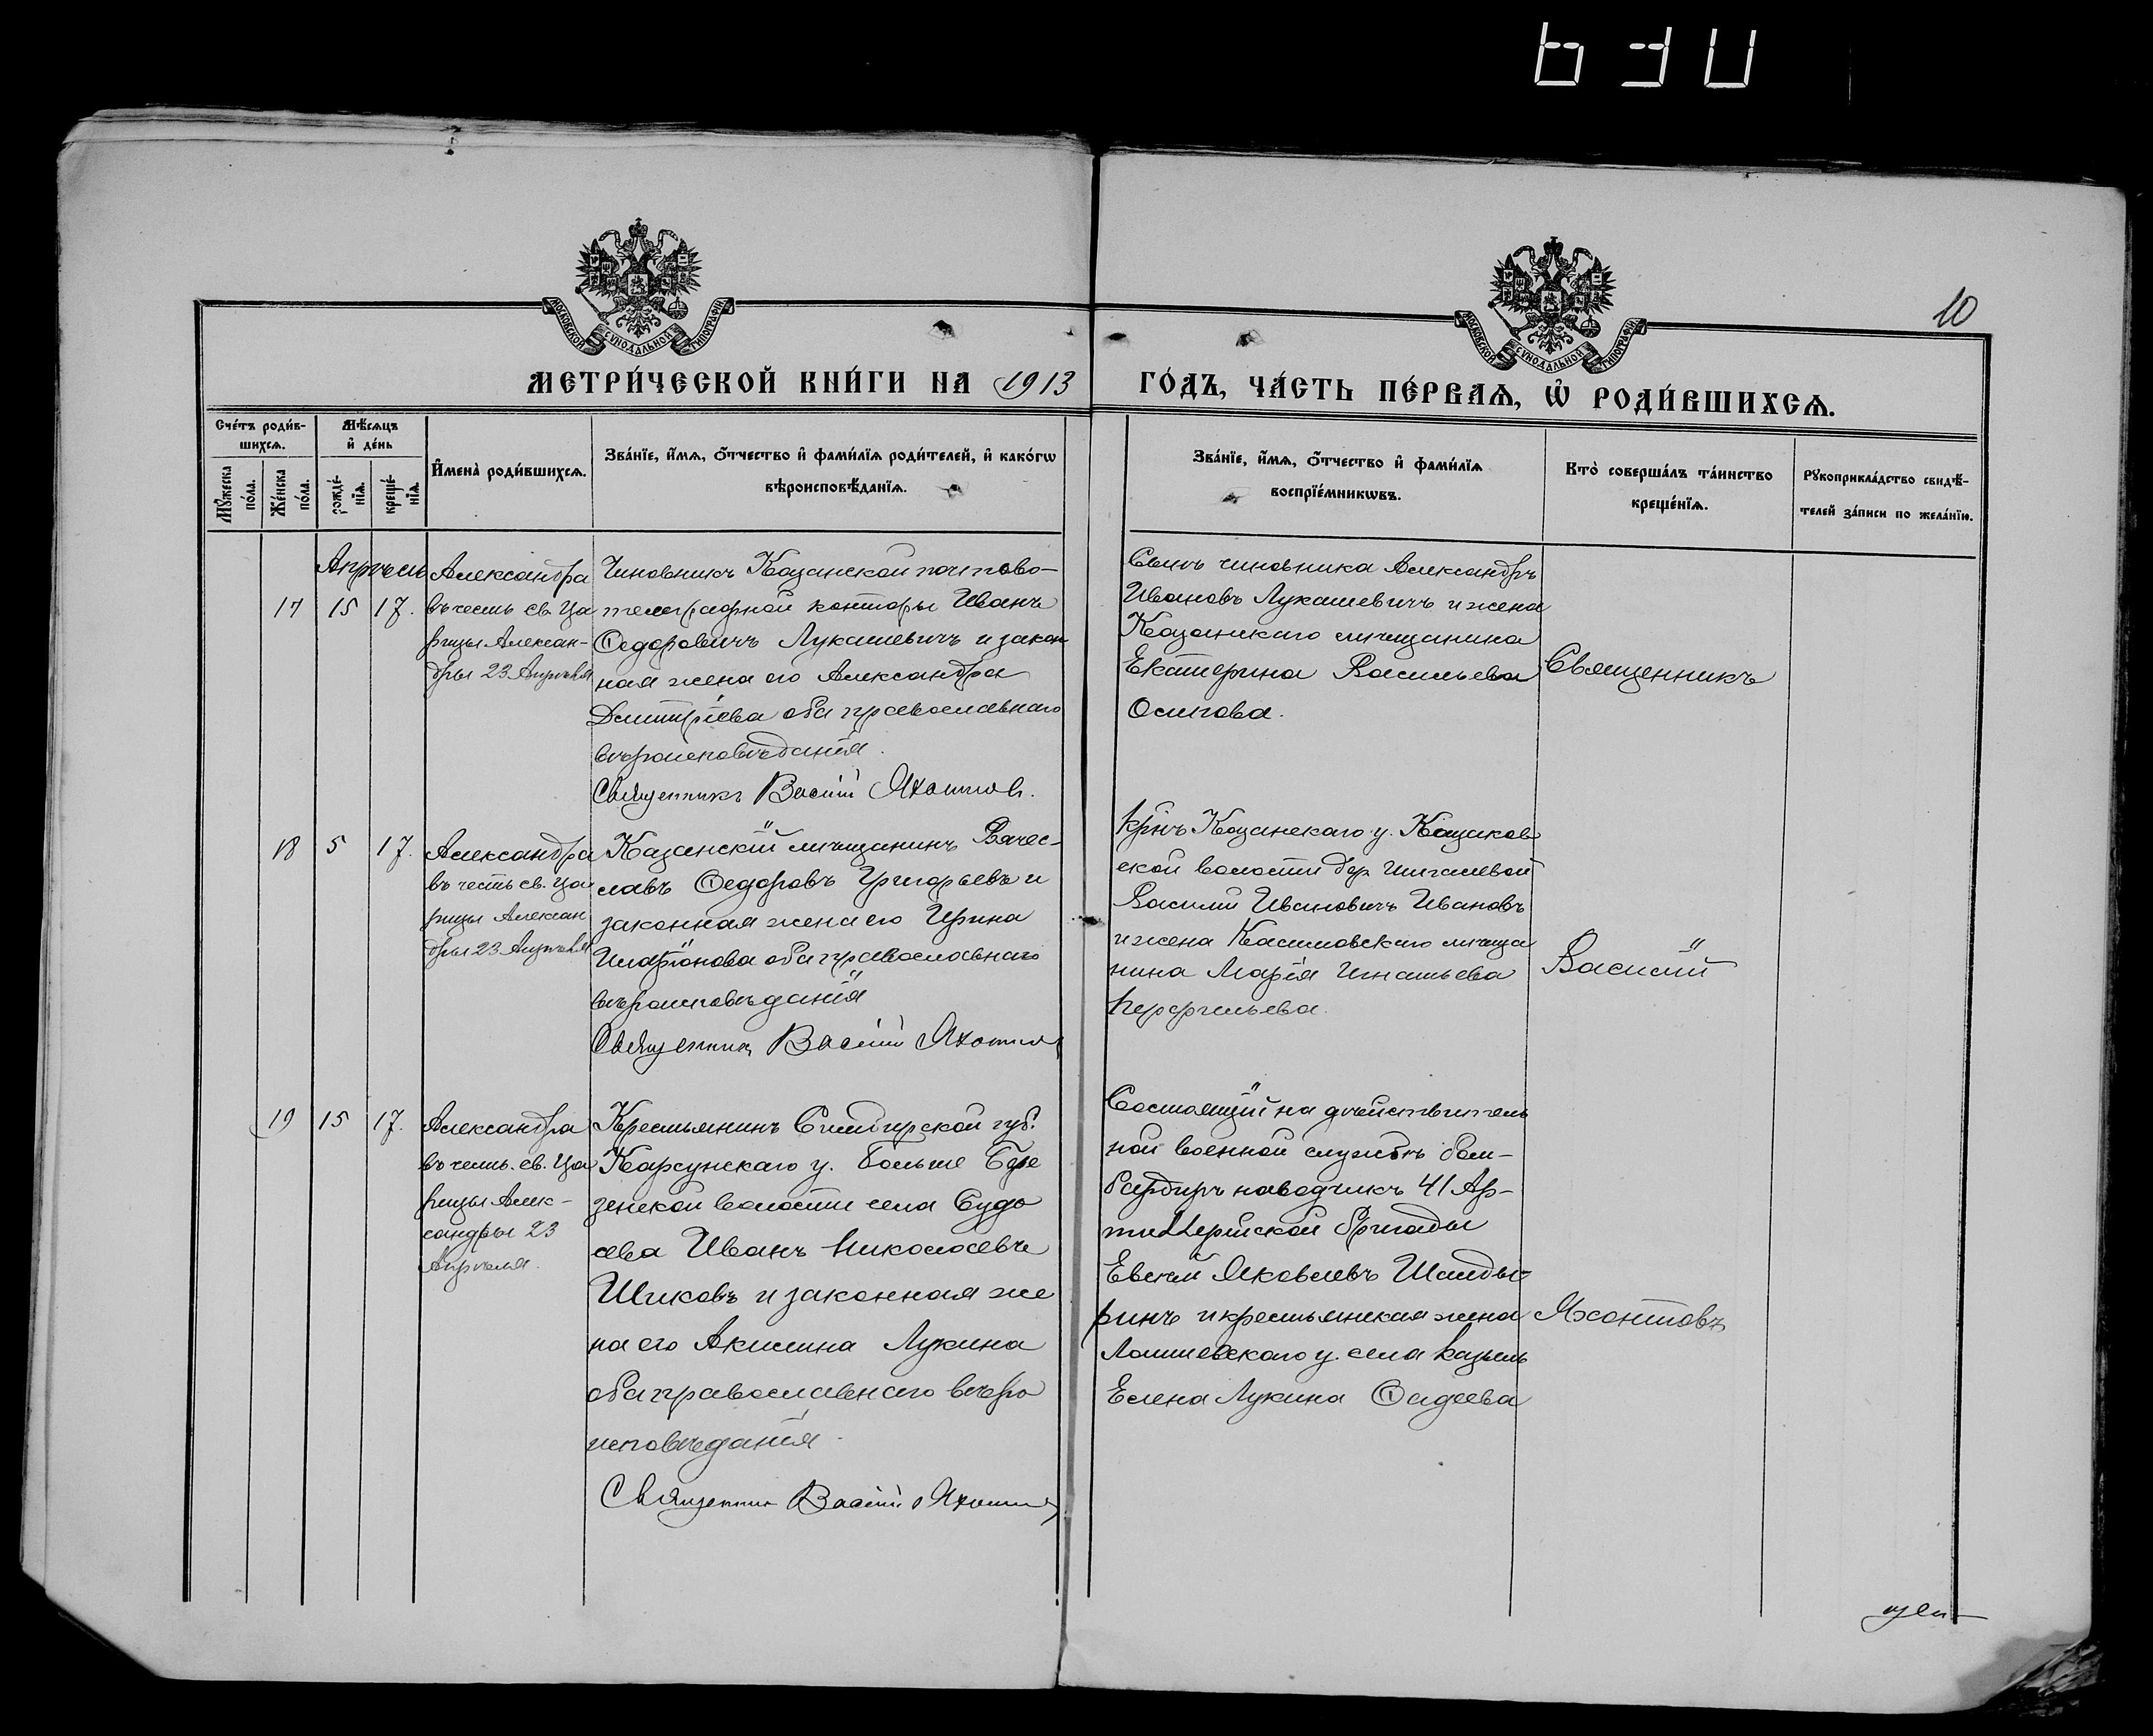 630
10
МОСКОВСКОЙ СѴНОДАЛЬНОЙ ТИПОГРАФІИ
МОСКОВСКОЙ СѴНОДАЛЬНОЙ ТИПОГРАФІИ
МЕТРИ́ЧЕСКОЙ КНИ́ГИ НА 1913
ГО́ДЪ, ЧА́СТЬ ПЕ́РВАѦ, Ѡ҆ РОДИ́ВШИХСѦ.
Сче́тъ роди́в-
шихсѧ.
Мꙋ́жеска по́ла.
Же́нска по́ла.
Мѣ́сѧцъ
и҆ де́нь
рожде́-
нїѧ.
креще́-
нїѧ.
И҆мена̀ роди́вшихсѧ.
Зва́нїе, и҆́мѧ, ѻ҆́тчество и҆ фами́лїѧ роди́телей, и҆ како́гѡ
вѣроисповѣ́данїѧ.
Зва́нїе, и҆́мѧ, ѻ҆́тчество и҆ фами́лїѧ
воспрїе́мникѡвъ.
Кто̀ соверша́лъ та́инство
креще́нїѧ.
Рꙋкоприкла́дство свидѣ́-
телей за́писи по жела́нїю.
Апрѣль
17 15 17.
Александра
въ честь св. Ца
рицы Алексан-
дры 23 Апрѣля
Чиновникъ Казанской почтово-
телеграфной конторы Иванъ
Ѳедоровичъ Лукашевичъ и закон
ная жена его Александра
Димитріева оба православнаго
вѣроисповѣданія.
Священникъ Василій Яхонтовъ.
Сынъ чиновника Александръ
Ивановъ Лукашевичъ и жена
Казанскаго мѣщанина
Екатерина Васильева
Осипова.
Священникъ
18 5 17.
Александра
въ честь св. Ца
рицы Алексан
дры 23 Апрѣля
Казанскій мѣщанинъ Вячес-
лавъ Ѳедоровъ Григорьевъ и
законная жена его Ирина
Иларіонова оба православнаго
вѣроисповѣданія
Священникъ Василій Яхонтовъ
Кр̃нъ Казанскаго у.
ской волости дер.
Василій Ивановичъ Ивановъ
и жена Касимовскаго мѣща
нина Марія Игнатьева
Василій
19 15 17.
Александра
въ честь. св. Ца
рицы Алек-
сандры 23
Апрѣля.
Крестьянинъ Симбирской губ.
Карсунскаго у. Больше Бере
зенской волости села Судо
сева Иванъ Николаевъ
Шиковъ и законная же
на его Акилина Лукина
оба православнаго вѣро
исповѣданія.
Священник Василій Яхонтовъ
Состоящій на дѣйствитель
ной военной службѣ бом-
бардиръ наводчикъ 41 Ар-
тиллерійской бригады
Евсей Яковлевъ Шанды-
ринъ и крестьянская жена
Лаишевскаго у. села
Елена Лукина Ѳадеева
Яхонтовъ